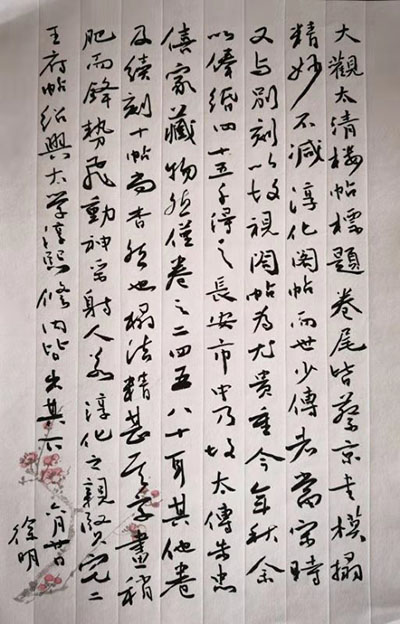 大觀太清樓帖標題卷尾皆蔡京書模搨
精妙不減淳化閣帖而世少傳者當宋時
又与別刻以故視閣帖為尤貴重今年秋余
以俸緡四十五千得之長安市中乃故太傅朱忠
僖家藏物然僅卷之二四五八十耳其他卷
及續刻十帖尚杳然也搨法精甚字畫稍
肥而鋒勢飛動神采射人若淳化之親賢宅二
王府帖紹興太学淳熙修內皆出其下
六月廿日
徐明